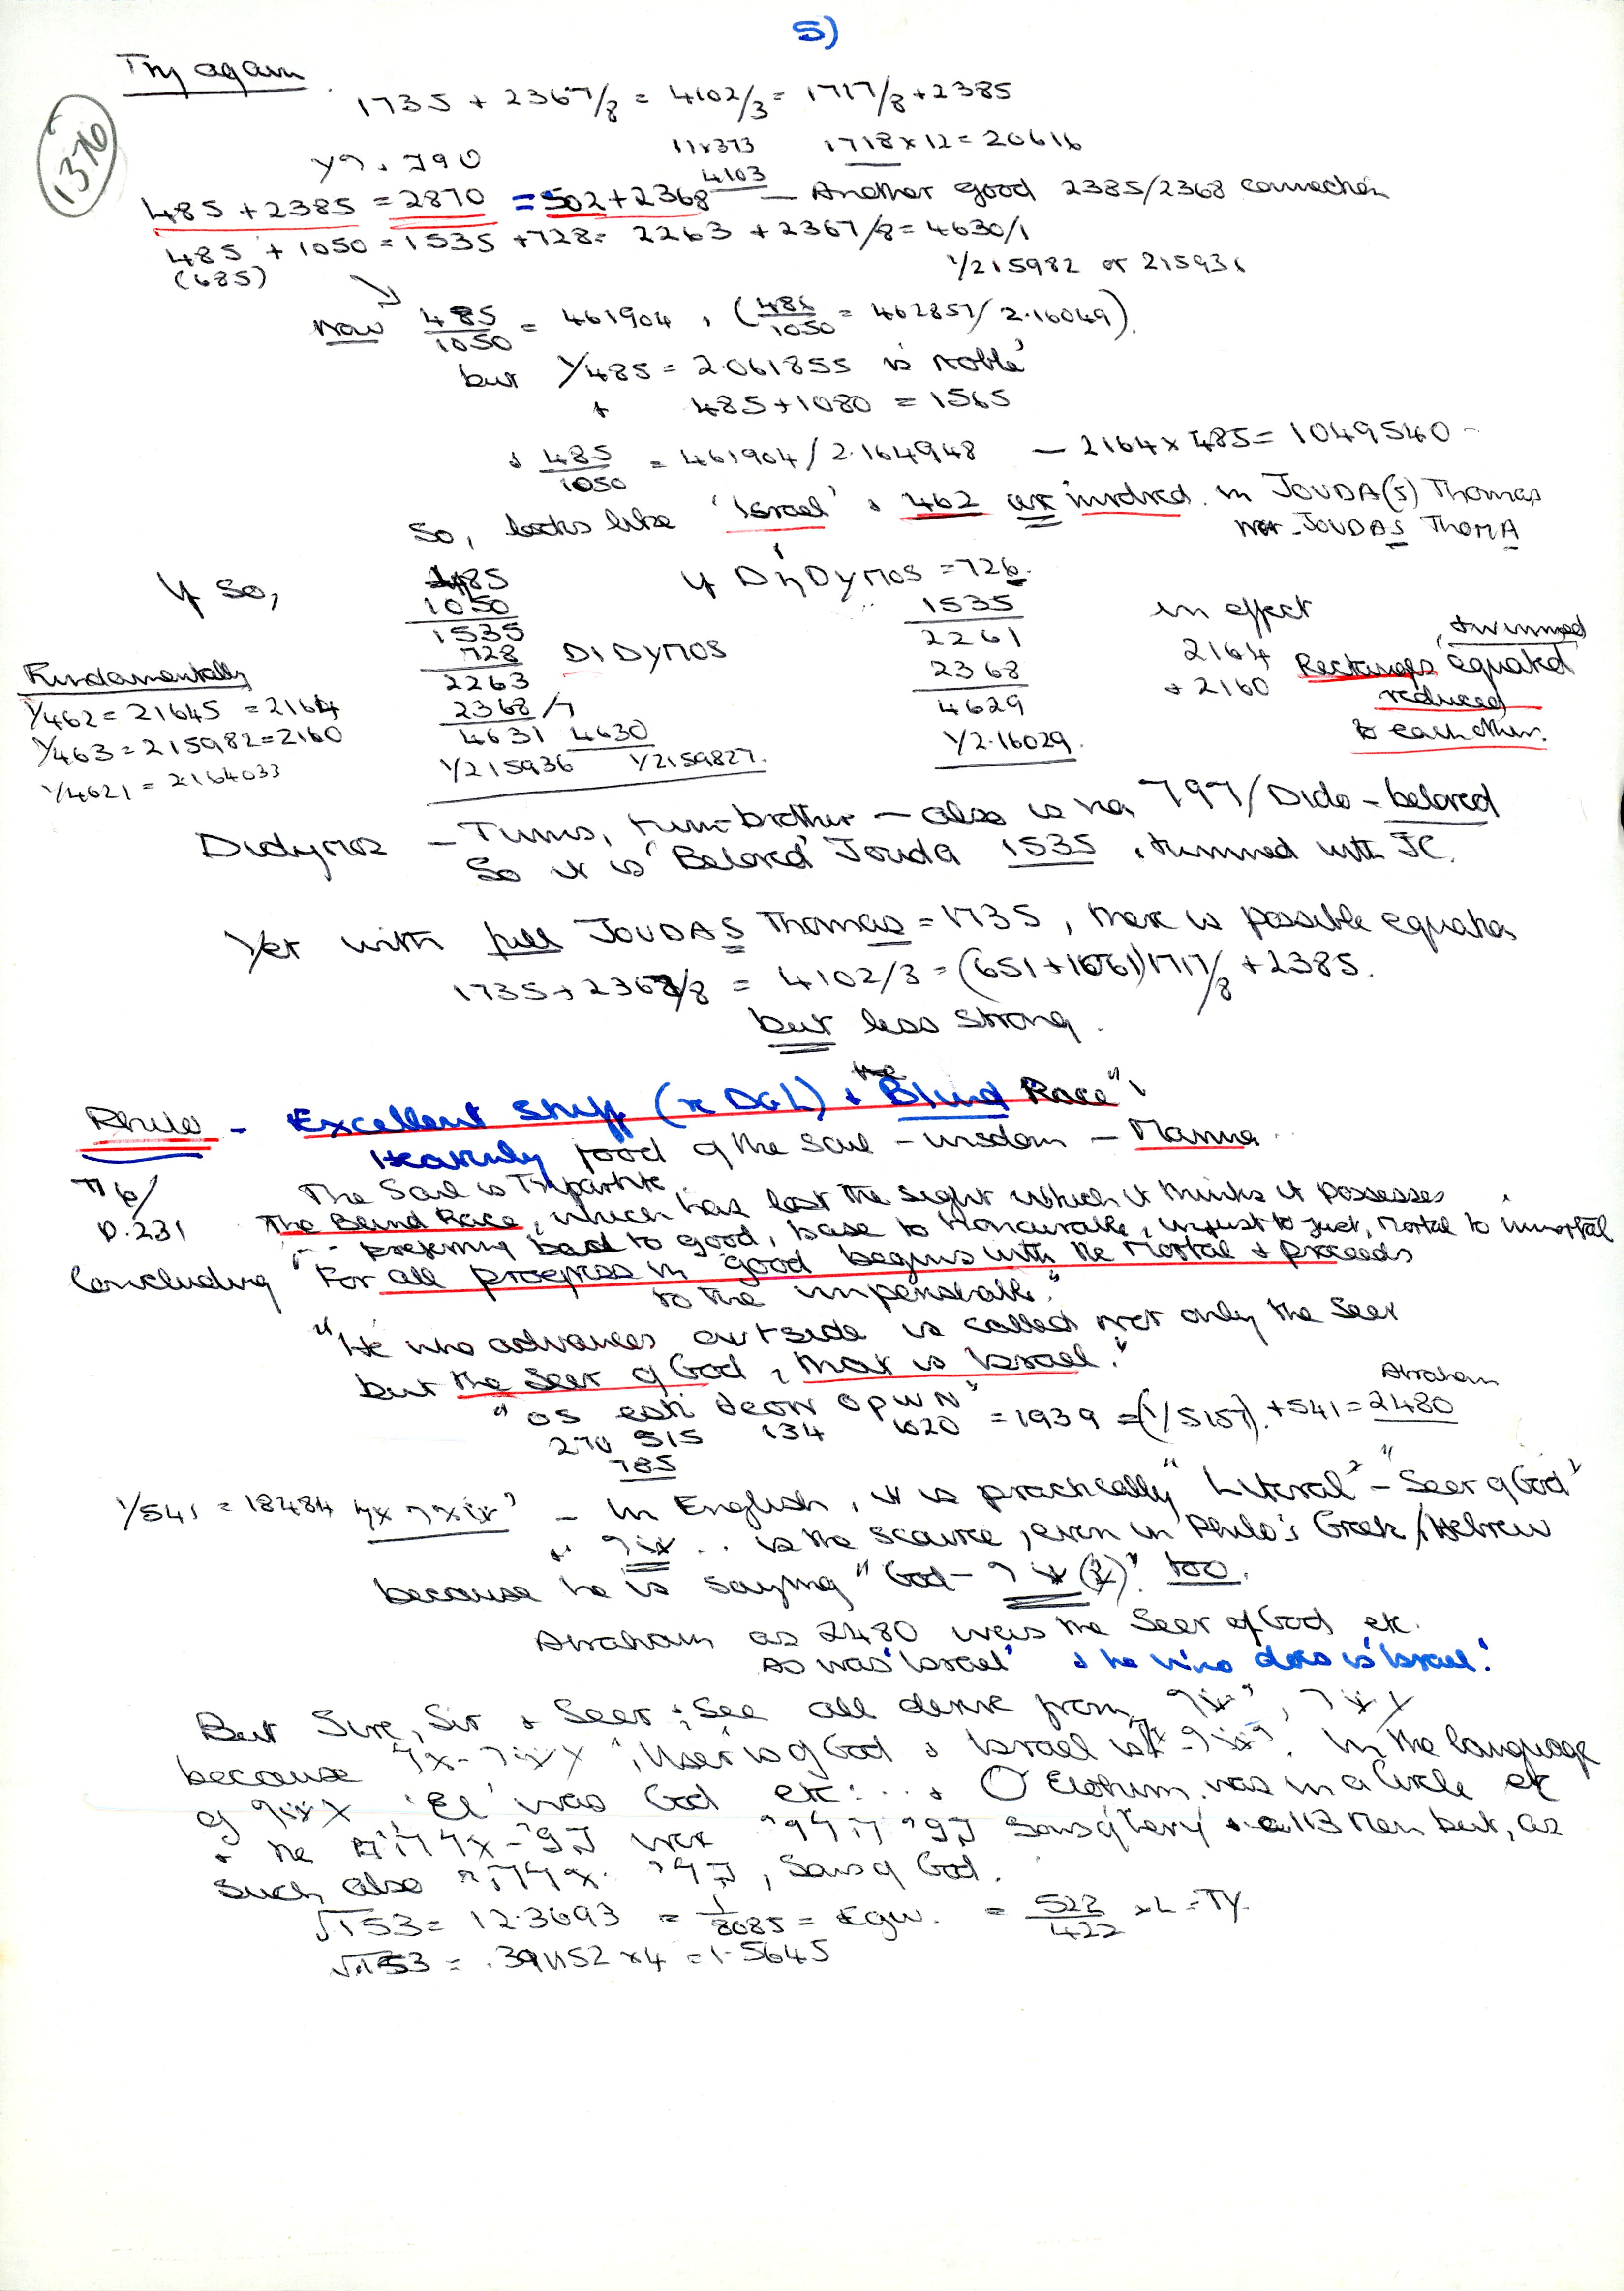 5)
Try again
1376
1735 + 2367/8 = 4102/3 = 1717/8 + 2385
11x373 1718 x 12 = 20616
4103
485 + 2385 = 2870 = 502 + 2368 — Another good 2385/2368 connection
485 + 1050 = 1535 + 728 = 2263 + 2367/8 = 4630/1
(685)
1/215982 or 215936
Now 485/1050 = 461904, (486/1050 = 462857/2.16049).
but 1/485 = 2.061855 is 'noble'
+ 485 + 1080 = 1565
+ 485/1050 = 461904/2.164948 — 2164 x 485 = 1049540 -
So, looks like 'Israel' + 462 are involved in JOUDA(S) Thomas
not JOUDAS ThomA
If so,
485
1050
1535
728 DIDYMOS
2263
2368/7
4631 4630
1/215936 1/2159827.
If DhDyMOS = 726.
1535
2261
2368
4629
1/2.16029.
in effect
2164
+ 2160
'twinned
Rectangles, equated'
reduced
to each other.
Fundamentally
1/462 = 21645 = 2164
1/463 = 215982 = 2160
1/4621 = 2164033
Didymos — Twins, twin-brother — also is his 797/Dido - beloved
So it is 'Beloved' Jouda 1535, twinned with JC.
Yet with full JOUDAS Thomas = 1735, there is possible equation
1735 + 2367/8 = 4102/3 = (651 + 1061) 1717/8 + 2385.
but less strong.
Philo - Excellent Stuff (x DGL) + "the Blind Race"
Heavenly food of the soul - wisdom - Manna
The Soul is Tripartite.
p.231 The Blind Race, which has lost the sight which it thinks it possesses
... preferring bad to good, base to Honourable, unjust to just, Mortal to immortal
Concluding "For all progress in good begins with the Mortal + proceeds
to the imperishable."
"He who advances outside is called not only the Seer
but the Seer of God, that is Israel."
Abraham
"os esti theon opwN" = 1939 = (1/5157). + 541 = 2480
270 515 134 1020
785
1/541 = 18484 - In English, it is practically "Literal" - "Seer of God"
is the source, even in Philo's Greek/Hebrew
because he is saying "God - too.
Abraham as 2480 was the Seer of God etc.
As was 'Israel' + he who does is 'Israel'.
But Sire, Sir + Seer + See all derive from
because 'User' is of God + Israel is In the language
of 'El' was God etc: ... + O Elohim was in a Circle etc
+ the not Sons of + all 3 Men but, as
such also , Sons of God.
√153 = 12.3693 = 1/8085 = Egw. = 522/422 x L = TY.
√.153 = .391152 x 4 = 1.5645